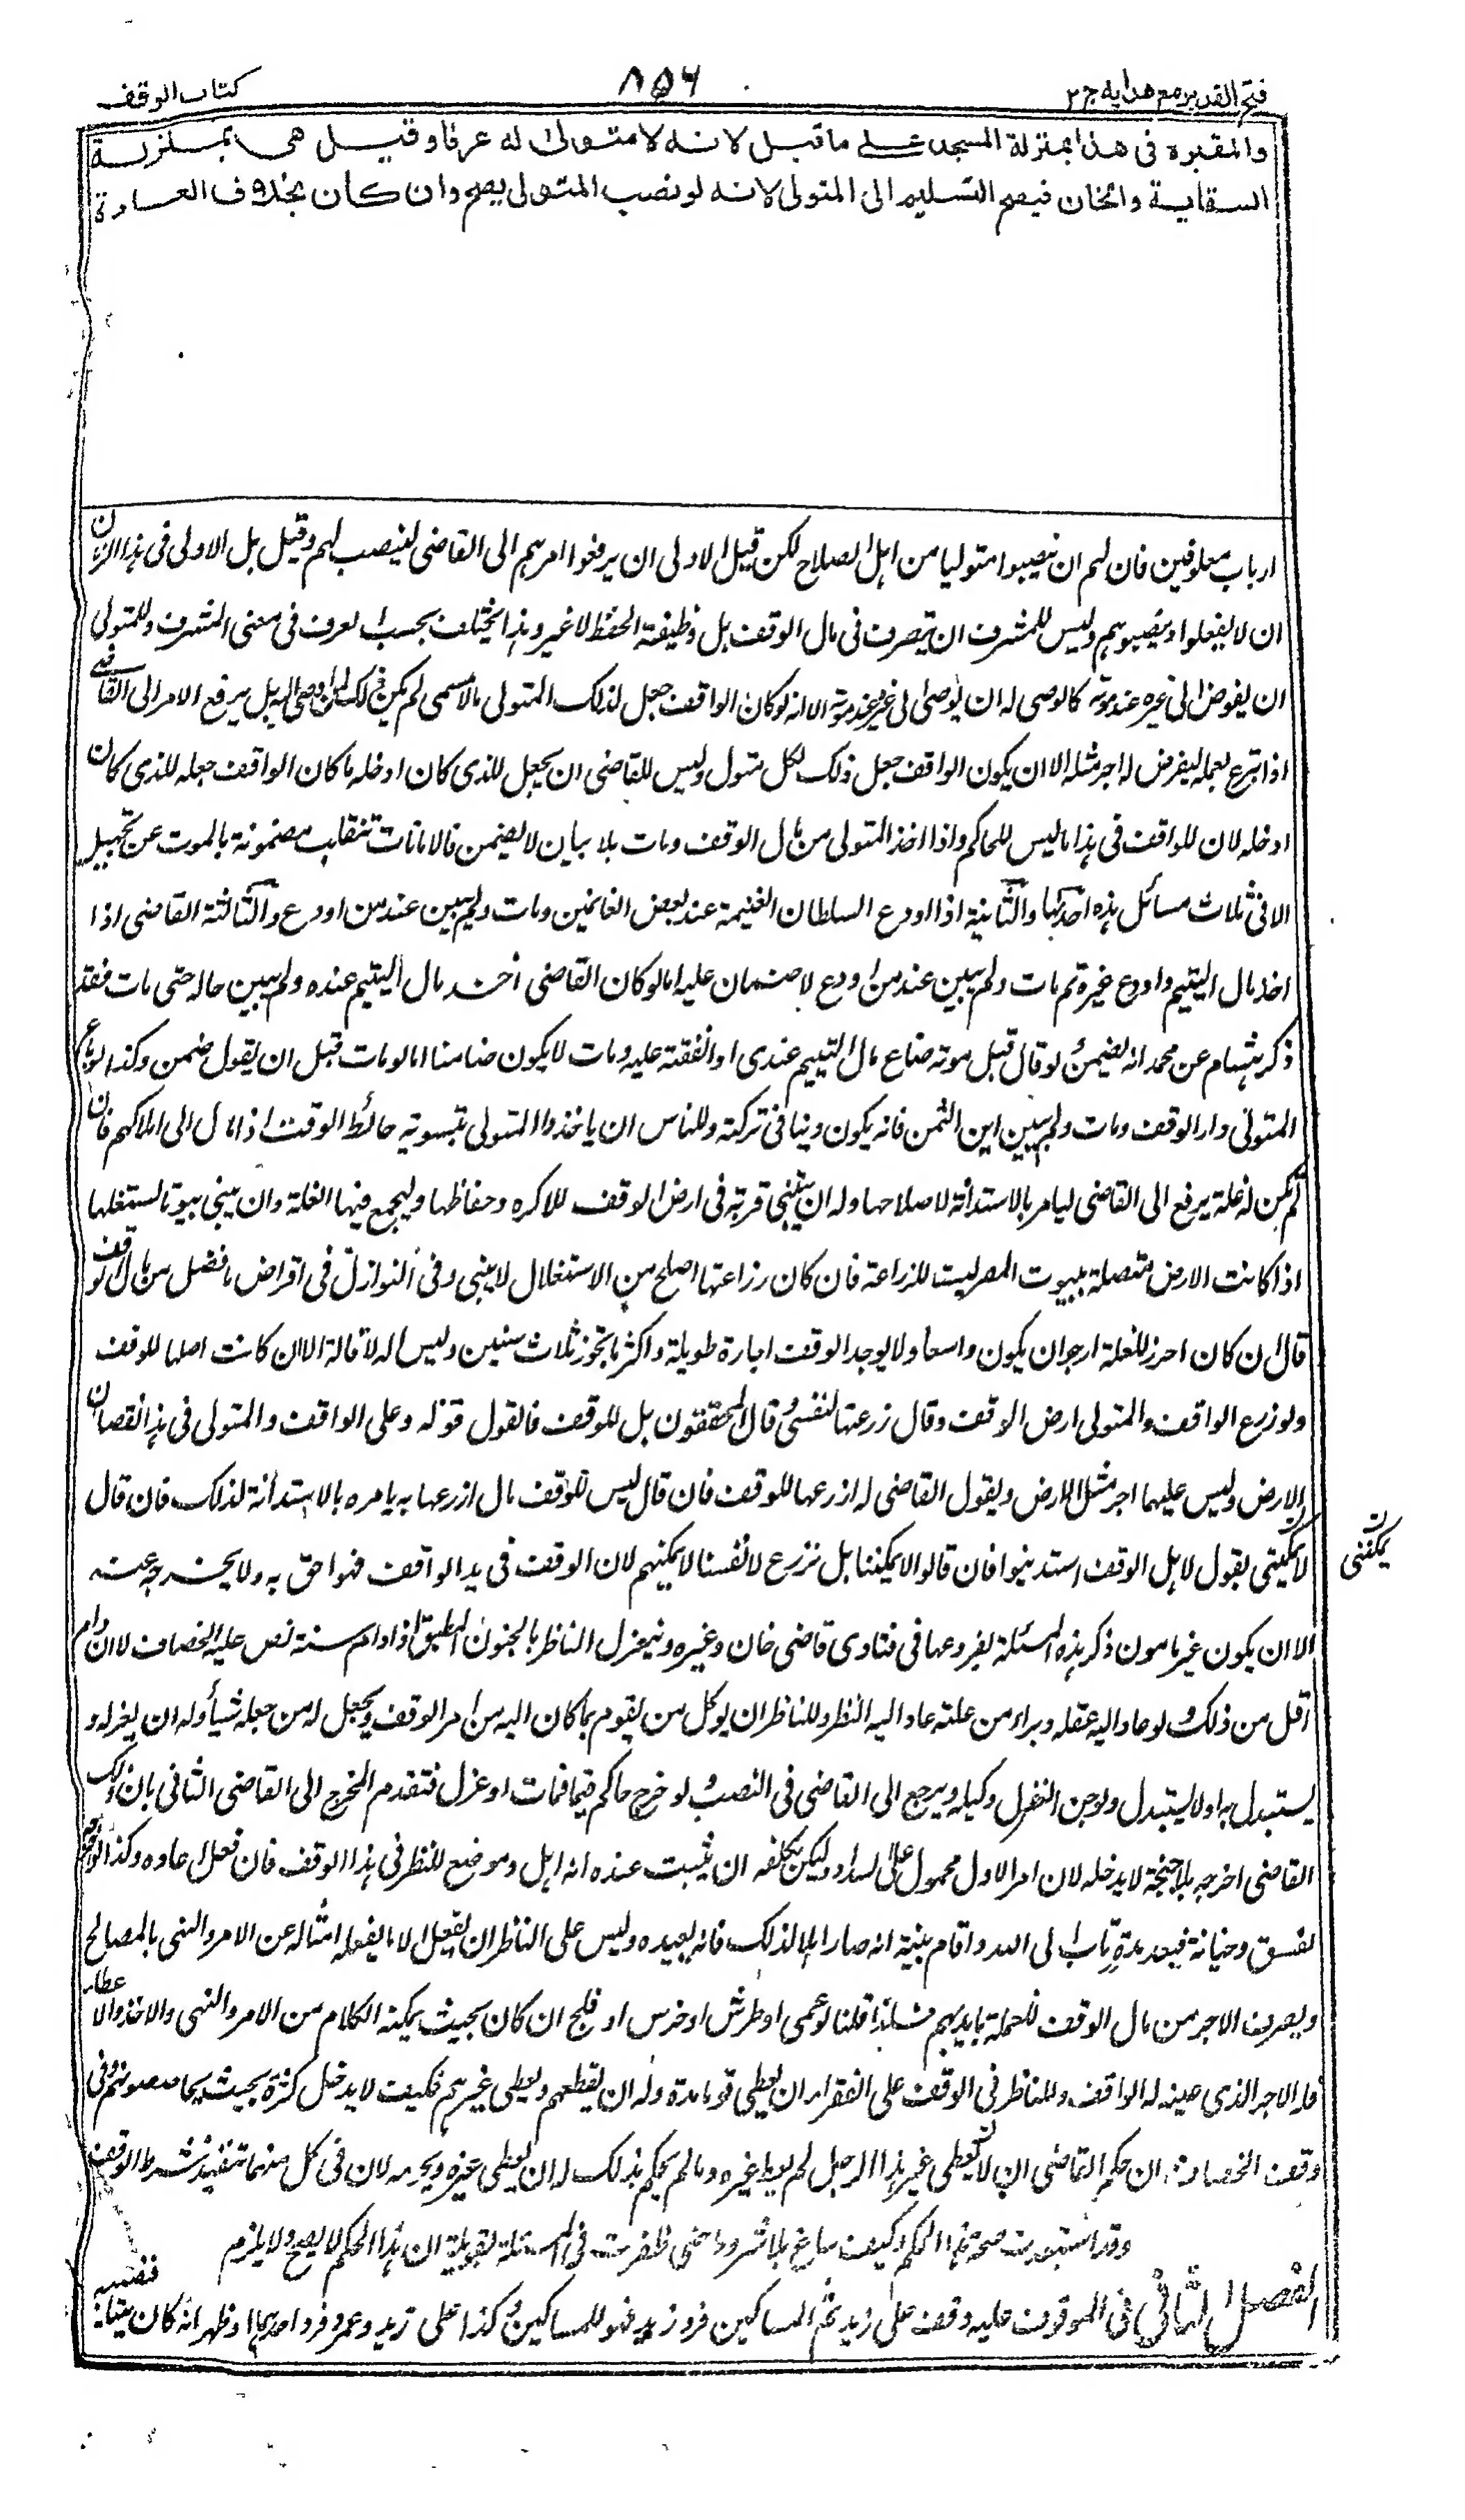 فتح القدير مع هدايه ج ٢
٨٥٦
كتاب الوقف
والمقبرة فى هذا بمنزلة المسجد على ما قيل لانه لا متولى له عرفا وقيل هى بمنزلة
السقاية والخان فيصح التسليم الى المتولى لانه لو نصب المتولى يصح وان كان بخلاف العادة
ارباب معلوفين فان لهم ان ينصبوا متوليا من اهل الصلاح لكن قيل الاولى ان يرفعوا امرهم الى القاضى لينصب لهم وقيل بل الاولى فى هذا الزمان
ان لا يفعلوا وينصبوهم وليس للمشرف ان يتصرف فى مال الوقف بل وظيفته الحفظ لا غير وهذا يختلف بحسب العرف فى معنى المشرف وللمتولى
ان يفوض الى غيره عند موته كالوصى له ان يوصى الى غيره عند موته الا انه لو كان الواقف جعل لذلك المتولى مالا مسمى لم يكن ذلك لمن اوصى اليه بل يرفع الامر الى القاضى
اذا تبرع بعمله ليفرض له اجر مثله الا ان يكون الواقف جعل ذلك لكل متول وليس للقاضى ان يجعل للذى كان ادخله ما كان الواقف جعله للذى كان
ادخله لان للواقف فى هذا ما ليس للحاكم واذا اخذ المتولى من مال الوقف ومات بلا بيان لا يضمن فالامانات تنقلب مضمونة بالموت عن تجهيل
الا فى ثلاث مسائل هذه احدها والثانية اذا اودع السلطان الغنيمة عند بعض الغانمين ومات ولم يبين عند من اودع والثالثة القاضى اذا
اخذ مال اليتيم واودع غيره ثم مات ولم يبين عند من اودع لا ضمان عليه اما لو كان القاضى أخذ مال اليتيم عنده ولم يبين حاله حتى مات فقد
ذكر هشام عن محمد انه يضمن ولو قال قبل موته ضاع مال اليتيم عندى او انفقته عليه ومات لا يكون ضامنا اما لو مات قبل ان يقول ضمن وكذا لو باع
المتولى دار الوقف ومات ولم يبين اين الثمن فانه يكون دينا فى تركته وللناس ان ياخذوا المتولى بتسوية حائط الوقف اذا مال الى املاكهم فان
لم يكن له غلة يرفع الى القاضى ليامر بالاستدانة لاصلاحها وله ان يبنى قرية فى ارض الوقف للاكره وحفاظها وليجمع فيها الغلة وان يبنى بيوتا يستغلها
اذا كانت الارض متصلة ببيوت المصر ليست للزراعة فان كان زراعتها اصلح من الاستغلال لا يبنى وفى النوازل فى اقراض ما فضل من مال الوقف
قال ان كان احرز للغلة ارجو ان يكون واسعا ولا يوجد الوقف اجارة طويلة واكثر ما تجوز ثلاث سنين وليس له الاقالة الا ان كانت اصلح للوقف
ولو زرع الواقف والمتولى ارض الوقف وقال زرعتها لنفسى وقال المحققون بل للوقف فالقول قوله وعلى الواقف والمتولى فى هذا نقصان
الارض وليس عليهما اجر مثل الارض ويقول القاضى له ازرعها للوقف فان قال ليس للوقف مال ازرعها به يامره بالاستدانة لذلك فان قال
لا يمكننى يقول لاهل الوقف استدينوا فان قالوا لا يمكننا بل نزرع لانفسنا لا يمكنهم لان الوقف فى يد الواقف فهو احق به ولا يخرج عنه
يمكننى
الا ان يكون غير مامون ذكر هذه المسئلة بفروعها فى فتاوى قاضى خان وغيره وينعزل الناظر بالجنون المطبق اذا دام سنة نص عليه الخصاف لا ان دام
اقل من ذلك ولو عاد اليه عقله وبراء من علته عاد اليه النظر وللناظر ان يوكل من يقوم بما كان اليه من امر الوقف ويجعل له من جعله شيأ وله ان يعزله و
يستبدل به او لا يستبدل ولو جن انعزل وكيله ويرجع الى القاضى فى النصب ولو خرج حاكم قيما فمات او عزل فتقدم المخرج الى القاضى الثانى بان ذلك
القاضى اخرجه بلا جنحة لا يدخله لان امر الاول محمول على السداد ولكن يكلفه ان يثبت عنده انه اهل وموضع للنظر فى هذا الوقف فان فعل اعاده وكذا لو اخرجه
لفسق وخيانة فبعد مدة تاب الى الله واقام بينة انه صار اهلا لذلك فانه يعيده وليس على الناظر ان يفعل الا ما يفعله امثاله عن الامر والنهى بالمصالح
ويصرف الاجر من مال الوقف للعملة بايديهم ومن هذا قلنا لو عمى او طرش او خرس او فلج ان كان بحيث يمكنه الكلام من الامر والنهى والاخذ والاعطاء
فله الاجر الذى عينه له الواقف وللناظر فى الوقف على الفقراء ان يعطى قوما مدة وله ان يقطعهم ويعطى غيرهم فكيف لا يدخل كثرة بحيث وفى
وقف الخصاف ان حكم القاضى ان لا يعطى غير هذا الرجل لم يعط غيره وما لم يحكم بذلك له ان يعطى غيره ويحرمه لان فى كل منهما تنفيذ شرط الواقف
وقد استبعدت صحة هذا الحكم وكيف ساغ بلا شرط حتى ظفرت فى المسئلة بقوله ان هذا الحكم لا يصح ولا يلزم
الفصل الثانى فى الموقوف عليه وقف على زيد ثم المساكين فرد زيد فهو للمساكين وكذا على زيد وعمرو فرد احدهما او ظهر انه كان ميتا فنصيبه